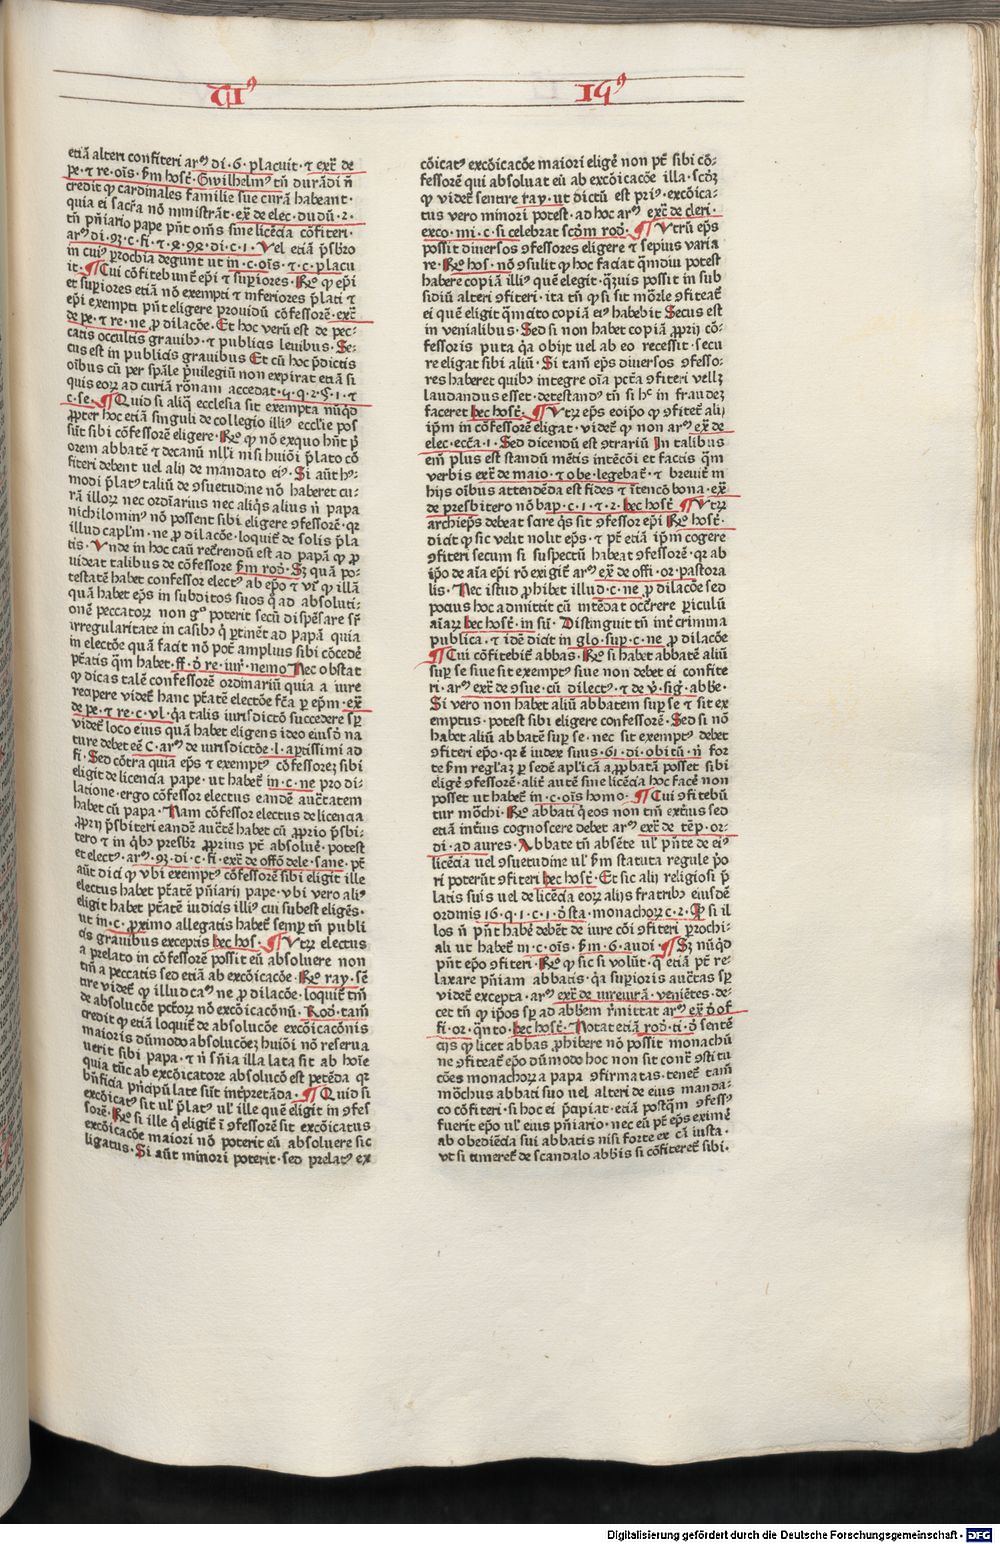 etiã alteri confiteri arꝰ di·6·placuit·⁊ exͬ de
pe·⁊ re·oĩs·ẜm hosẗ·Gwilhelmꝰ tñ durãdi ñ
credit ꝙ cardinales familie sue curã habeant·
quia ei sacr̃a nõ ministrãt·exͬ de elec·dudũ·2·
tñ pñiario pape pñt om̃s sine licẽcia cõfiteri·
in cuiꝰ prochia degunt ut in·c·oĩs·⁊·c·placu
it·¶Cui cõfitebunt̃ epĩ ⁊ supiores·Ro ꝙ epĩ
et supiores etiã nõ exempti ⁊ inferiores p̃lati ⁊
epĩ exempti pñt eligere prouidũ cõfessorẽ·exͬ
de pe·⁊ re·ne ꝓ dilacõe·Et hoc verũ est de pec⸗
catis occultis grauibꝰ·⁊ publicis leuibus·Se⸗
cus est in publicis grauibus Et cũ hoc p̃dictis
oibus cũ per spãle p̃uilegiũ non expirat etiã si
quis eoꝝ ad curiã rõnam accedat·
c·se·¶Quid si aliq̃ ecclesia sit exempta nũq̃d
ꝓpter hoc etiã singuli de collegio illiꝰ eccl̃ie pos
sũt sibi cõfessorẽ eligere·Ro ꝙ nõ exquo hñt p̃
orem abbatẽ ⁊ decanũ nl̃l'i nisi huiõi p̃lato cõ
fiteri debent vel alij de mandato eiꝰ·Si aũt hꝰ⸗
modi p̃latꝰ taliũ de ꝯsuetudine nõ haberet cu⸗
rã illoꝝ nec ordiarius nec aliqͥs alius ñ papa
nichilominꝰ nõ possent sibi eligere ꝯfessorẽ·qꝛ
illud capl̃m·ne ꝓ dilacõe·loquit̃ de solis p̃la
tis·Vnde in hoc caũ recr̃rendũ est ad papã ꝙ ꝓ
uideat talibus de cõfessore ẜm rod̾·Sꝫ quã po⸗
testatẽ habet confessor electꝰ ab epõ ⁊ vtꝝ ꝙ illã
quã habet ep̃s in subditos suos q̃ ad absoluti⸗
onẽ peccatoꝝ non gͦ poterit secũ dispẽsare sr̃
irregularitate in casibꝰ q̃ ptinẽt ad papã quia
in electõe quã facit nõ pot̃ amplius sibi cõcedẽ
ptãtis q̃m habet·ff·đ re·iur̃·nemo Nec obstat
ꝙ dicas talẽ confessorẽ ordinariũ quia a iure
recipere videt̃ hanc ptãtẽ electõe fc̃a p epm·exͬ
de pe·⁊ re·c·vl·q̃a talis iurisdictõ succedere sp̃
videt̃ loco eius quã habet eligens ideo eiusđ na
ture debet eẽ C·arꝰ de iurisdictõe·l·aptissimi ad
fi·Sed cõtra quia ep̃s ⁊ exemptꝰ cõfessoreꝫ sibi
eligit de licencia pape·ut habet̃ in·c·ne pro di⸗
latione·ergo cõfessor electus eandẽ auctatem
habet cũ papa·Nam cõfessor electus de licencia
ꝓprij p̃sbiteri eandẽ auctẽ habet cũ ꝓprio p̃sbi⸗
tero ⁊ in q̃bꝰ presbr̃ ꝓprius pt̃ absoluẽ·potest
et electꝰ·arꝰ·93·di·c·fi·exͬ de off̃o dele·sane·pt̃
aũt dici ꝙ vbi exemptꝰ cõfessorẽ sibi eligit ille
electus habet ptãtẽ pñiarij pape·vbi vero aliꝰ
eligit habet ptãtẽ iudicis illiꝰ cui subest eligẽs·
ut in·c·ꝓximo allegatis habet̃ semꝑ tñ publi
cis grauibus exceptis hec hos·¶Vtꝝ electus
a prelato in cõfessorẽ possit eũ absoluere non
tm̃ a peccatis sed etiã ab excõicacõe·Ro ray·sẽ
tire videt̃ ꝙ illud caꝫ ne ꝓ dilacõe·loquit̃ tm̃
de absolucõe pctõꝝ nõ excõicacõnũ·Rod̾·tam̃
credit ꝙ etiã loquit̃ de absolucõe excõicacõnis
maioris dũmodo absolucõeꝫ huiõi nõ reserua
uerit sibi papa·⁊ ñ sñia illa lata sit ab hoĩe
quia tũc ab excõicatore absolucõ est petẽda qꝛ
bñficia pñcipũ late sũt int̃pretãda·¶Quid si
excõicatꝰ sit ul' p̃latꝰ ul' ille quẽ eligit in ꝯfes
sorẽ·Ro si ille q̃ eligit̃ ĩ ꝯfessorẽ sit excõicatus
excõicacõe maiori nõ poterit eũ absoluere sic
ligatus·Si aũt minori poterit·sed prelatꝰ ex
cõicatꝰ excõicacõe maiori eligẽ non pt̃ sibi cõ⸗
fessorẽ qui absoluat eũ ab excõicacõe illa·scõꝫ
ꝙ videt̃ sentire ray·ut dictũ est priꝰ·excõica⸗
tus vero minori potest·ad hoc arꝰ exͬ de cleri·
exco·mi·c·si celebrat scõm rod̾·¶Vtrũ ep̃s
possit diuersos ꝯfessores eligere ⁊ sepius varia
re·Ro hos·nõ ꝯsulit ꝙ hoc faciat q̃mdiu potest
habere copiã illiꝰ quẽ elegit·q̃uis possit in sub
sidiũ alteri ꝯfiteri·ita tñ ꝙ si sit mõrle ꝯfiteat̃
ei quẽ eligit q̃mcito copiã eiꝰ habebit Secus est
in venialibus·Sed si non habet copiã ꝓprij cõ⸗
fessoris puta q̃a obijt vel ab eo recessit·secu
re eligat sibi aliũ·Si tam̃ ep̃s diuersos ꝯfesso⸗
res haberet quibꝰ integre oĩa pctã ꝯfiteri vellꝫ
laudandus esset·detestandꝰ tñ si hͨ in fraudeꝫ
faceret hec hosẗ·¶Vtꝝ ep̃s eoip̃o ꝙ ꝯfitet̃ ali⸗
ip̃m in cõfessorẽ eligat·videt̃ ꝙ non arꝰ exͬ de
elec·ecc̃a·1·Sed dicendũ est ꝯtrariũ In talibus
em̃ plus est standũ mẽtis intẽcõi et factis q̃m
verbis exͬ de maio·⁊ obe·legebat̃·⁊ breuit̃ ĩ
hijs oĩbus attendẽda est fides ⁊ ĩtencõ bona·exͬ
de presbitero nõ bap·c·1·⁊·2·hec hosẗ ¶Vtꝝ
archiep̃s debeat scire q̃s sit ꝯfessor epĩ Ro hosẗ·
dicit ꝙ sic velit nolit ep̃s·⁊ pt̃ etiã ip̃m cogere
ꝯfiteri secum si suspectũ habeat ꝯfessorẽ·qꝛ ab
ip̃o de aĩa epĩ rõ exigit̃ arꝰ exͬ de offi·or·pastora
lis·Nec istud ꝓhibet illud·c·ne ꝓ dilacõe sed
pocius hoc admittit cũ intẽdat occr̃rere piculũ
aĩaꝝ hec hosẗ·in sũ·Distinguit tñ int̃ crimina
publica·⁊ idẽ dicit in glo·sup·c·ne ꝓ dilacõe
¶Cui cõfitebit̃ abbas·Ro si habet abbatẽ aliũ
supͬ se siue sit exemptꝰ siue non debet ei confite
ri·arꝰ exͬ de ꝯsue·cũ dilectꝰ·⁊ de v̾·sig̃·abbe·
Si vero non habet aliũ abbatem supͬ se ⁊ sit ex
emptus·potest sibi eligere confessorẽ·Sed si nõ
habet aliũ abbatẽ supͬ se·nec sit exemptꝰ debet
ꝯfiteri epõ·qꝛ ẽ iudex suus·61·di·obitũ·ñ for
te ẜm regl̃aꝫ p sedẽ apl̃icã aꝓbatã posset sibi
eligẽ ꝯfessorẽ·alit̃ autẽ sine licẽcia hoc facẽ non
posset ut habet̃ in·c·oĩs homo·¶Cui ꝯfitebũ
tur mõchi·Ro abbati q̃ eos non tm̃ ext̾ius sed
etiã int̾ius cognoscere debet arꝰ exͬ de tẽp·or⸗
di·ad aures·Abbate tñ absẽte ul' pñte de eiꝰ
licẽcia uel ꝯsuetudine ul' ẜm statuta regule p̃o
ri poterũt ꝯfiteri hec hosẗ·Et sic alij religiosi p̃
latis suis uel de licẽcia eoꝝ alijs fratribꝰ eiusdẽ
ordinis 16·q·1·c·1·đ sta·monachoꝝ c·2·Qđ si il
los ñ pñt habẽ debẽt de iure cõi ꝯfiteri prochi⸗
ali ut habet̃ in·c·oĩs·ẜm·6·audi·¶Sꝫ nũq̃d
pñt epõ ꝯfiteri·Ro ꝙ sic si volũt·q̃ etiã pt̃ re⸗
laxare pñiam abbatis·q̃a supioris auctas sp̃
videt̃ excepta·arꝰ exͬ de iureiurã·veniẽtes·de⸗
cet tñ ꝙ ip̃os sp̃ ad abbẽm r̃mittat arꝰ exͬ đ of
fi·or·q̃nto·hec hosẗ·Notat etiã rod̾·ti·đ sentẽ
cijs ꝙ licet abbas ꝓhibere nõ possit monachũ
ne ꝯfiteat̃ epõ dũmodo hoc non sit contͬ ꝯstitu
tões monachoꝝ a papa ꝯfirmatas·tenet̃ tam̃
mõchus abbati suo vel alteri de eius manda⸗
co cõfiteri·si hoc ei p̃cipiat·etiã postq̃m ꝯfessꝰ
fuerit epõ ul' eius pñiario·nec eũ pt̃ ep̃s eximẽ
ab obediẽcia sui abbatis nisi forte ex cã iusta·
vt si timeret̃ de scandalo abbĩs si cõfiteret̃ sibi·
Digitalisierung gefördert durch die Deutsche Forschungsgemeinschaft - DFG